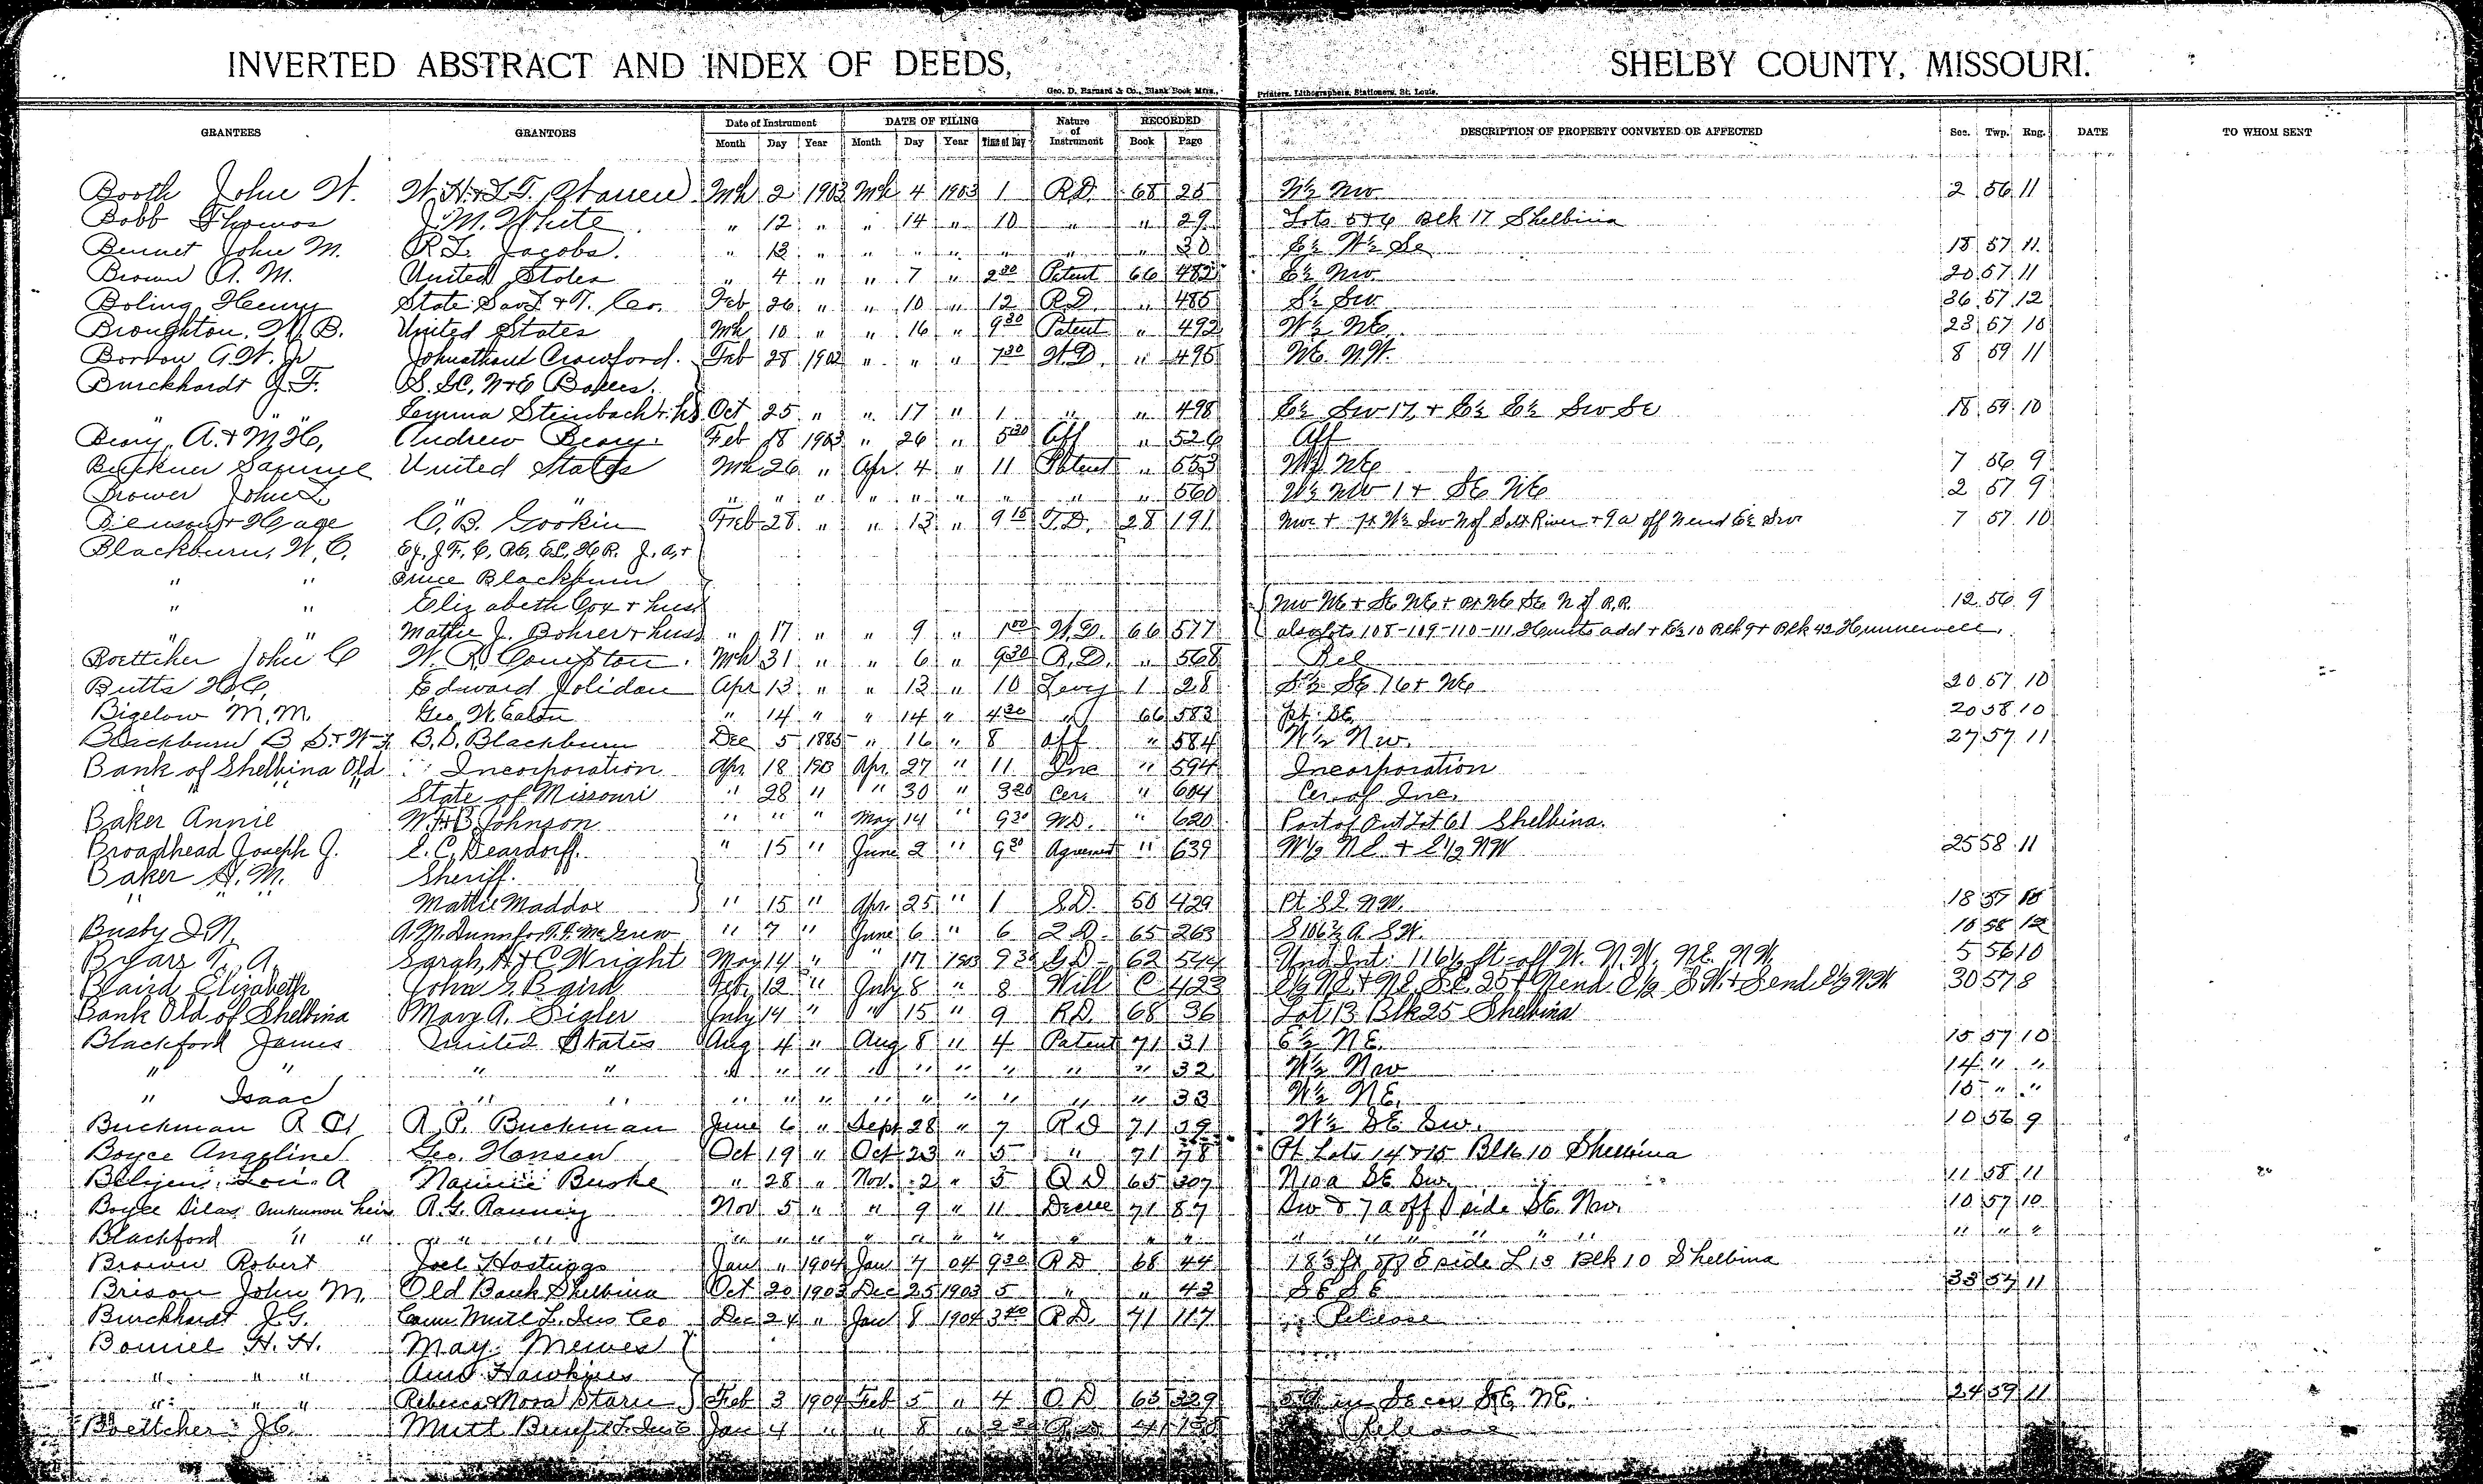 INVERTED ABSTRACT AND INDEX OF DEEDS, SHELBY COUNTY, MISSOURI.
Geo. D. Barnard & Co., Blank Book Mfrs., Printers, Lithographers, Stationers, St. Louis.
GRANTEES GRANTORS Date of Instrument DATE OF FILING Nature of Instrument RECORDED DESCRIPTION OF PROPERTY CONVEYED OR AFFECTED Sec. Twp. Rng. DATE TO WHOM SENT
Month Day Year Month Day Year Time of Day Book Page
Booth John W. W.H. & L.T. Warren Mch 2 1903 Mch 4 1903 1 R.D. 68 25 W½ NW 2 56 11
Bobb Thomas J.M. White " 12 " " 14 " 10 " " 29 Lots 5+6 Blk 17 Shelbina
Bennet John M. R.L. Jacobs. " 13 " " " " " " " 30 E½ W½ Se 18 57 11
Brown A. M. United States " 4 " " 7 " 2 30 Patent 66 482 E½ NW 20 57 11
Boling Henry State Sav L & T. Co. Feb 26 " " 10 " 12 R.D. " 485 S½ SW 36 57 12
Broughton, W. B. United States Mch 10 " " 16 " 9 30 Patent " 492 W½ NE 23 57 10
G.W. Jr Johnathan Crawford. Feb 28 1902 " " " 7 30 W.D. " 495 NE NW. 8 59 11
Burckhardt J.F.
" " " Emma Steinbach & hs Oct 25 " " 17 " 1 " " 498 E½ SW 17, + E½ E½ SW SE 18 59 10
A. & M. Andrew Feb 18 1903 " 26 " 5 30 Aff " 526 Aff
Buckner Samuel United States Mch 26 " Apr. 4 " 11 Patent " 553 NE 7 56 9
Brower John L " " " " " " " " " " " 560 W½ NW 1 + SE NE 2 57 9
C. B. Gookin Feb 28 " " 13 " 9 15 T.D. 28 191 W½ SW N of Salt River + 9a off N end E½ SW 7 57 10
Blackburn, W. C. J.F.
" " Blackburn
" " Elizabeth Cox & husd NW NE + SE NE + pt NE SE N of R.R. 12 56 9
" " Mattie J. Bohrer & husd " 17 " " 9 " 1 00 W.D. 66 577 also lots 108-109-110-111 add + Blk 9 + Blk 42 Hunnewell.
Boettcher John C W. R. Compton. Mch 31 " " 6 " 9 30 R.D. " 568 Rel
Butts H.C. Edward Jolidon Apr 13 " " 13 " 10 Levy 1 28 S½ SE 16 + NE 20 57 10
Bigelow M.M. Geo. W. Eaton " 14 " " 14 " 4 30 " 66 583 pt. SE 20 58 10
Blackburn B. D. Blackburn Dec 5 1885 " 16 " 8 aff " 584 N½ NW. 27 57 11
Bank of Shelbina Old Incorporation Apr. 18 1903 Apr. 27 " 11 Inc " 594 Incorporation
" " " State of Missouri " 28 " " 30 " 3 20 Cer. " 604 Cer. of Inc.
Baker Annie Johnson " " " May 14 " 9 30 W.D. " 620 Part of Out Lot 61 Shelbina.
Broadhead Joseph J. E. C. Deardorff. " 15 " June 2 " 9 30 Agreement " 639 W½ NE + E½ NW 25 58 11
Baker S. M. Sheriff.
" " " Mattie Maddox " 15 " Apr. 25 " 1 S.D. 50 429 Pt SE NW. 18 57 10
Busby " 7 " June 6 " 6 Q.D. 65 263 S 106½ a. SW. 10 58 12
Byars Sarah Wright May 14 " " 17 1903 9 30 Q.D. 62 544 Und Int. 116½ ft off W. N.W. NE. NW. 5 56 10
Baird Elizabeth John S. Baird Feb. 12 " July 8 " 8 Will C 423 E½ NE + NE SE 25 + N end E½ SW + S end E½ NW 30 57 8
Bank Old of Shelbina Mary A. Sigler July 14 " " 15 " 9 R.D. 68 36 Lot 13 Blk 25 Shelbina
Blackford James United States Aug 4 " Aug 8 " 4 Patent 71 31 E½ NE. 15 57 10
" " " " " " " " " " " " " 32 W½ NW 14 " "
" Isaac " " " " " " " " " " " 33 W½ NE. 15 " "
Buckman R C A. P. Buckman June 6 " Sept 28 " 7 R D 71 39 W½ SE SW. 10 56 9
Boyce Angeline Geo. Hansen Oct 19 " Oct 23 " 5 " 71 78 Pt Lots 14 & 15 Blk 10 Shelbina
Lou. A Nannie Burke " 28 " Nov. 2 " 5 Q D 65 307 N 10 a SE SW. 11 58 11
Boyce Silas unknown heirs A. G. Nov 5 " " 9 " 11 Decree 71 87 SW & 7 a off side SE NW. 10 57 10
Blackford " " " " " " " " " " " " " " " " " " " "
Brown Robert Joel Hastings Jan " 1904 Jan 7 04 9 30 R D 68 44 18½ ft off E side L 13 Blk 10 Shelbina
Brison John M. Old Bank Shelbina Oct 20 1903 Dec 25 1903 5 " " 43 SE SE 33 57 11
Burckhardt J.G. Conn. Mutl L. Ins Co Dec 24 " Jan 8 1904 3 40 R.D. 71 117 Release
H. H. May
" " " Hawkins
" " " Rebecca & Nora Feb 3 1904 Feb 5 " 4 Q D 65 329 in Se cor SE NE. 24 59 11
Boettcher J.C. Mutl Benefit L. Ins Co Jan 4 " " 8 " 2 30 R D 71 138 Release